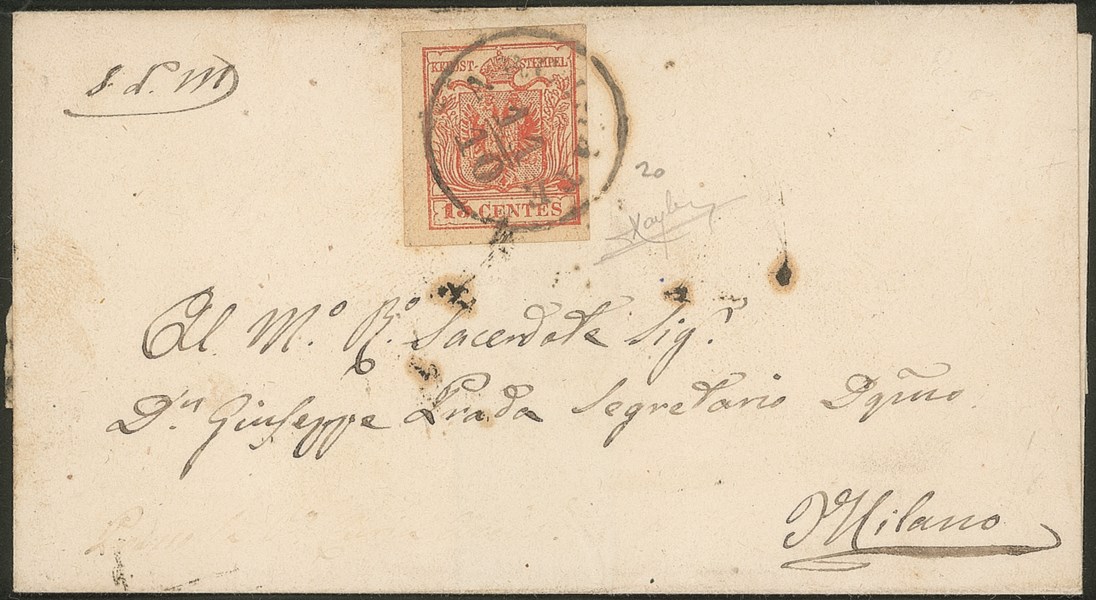 s. d. M
KKPOST-STEMPEL
11
10
15 CENTES
20
Al M.º R.º Sacerdote Sig.r
D.n Giuseppe Prada Segretario Dgmo
Milano